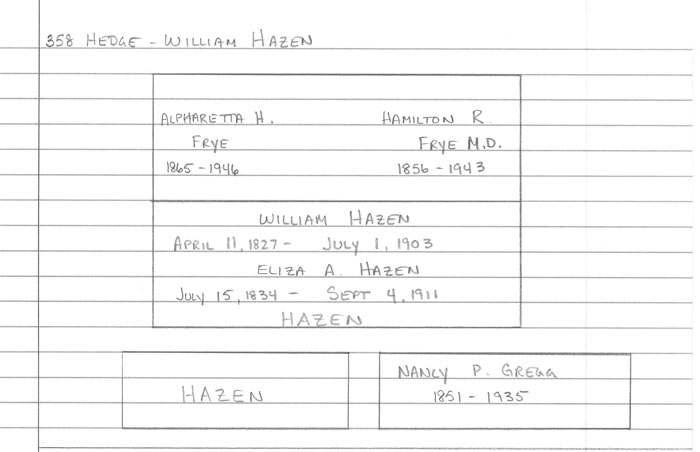 358 HEDGE - WILLIAM HAZEN
ALPHARETTA H. HAMILTON R.
FRYE FRYE M.D.
1865 - 1946 1856 - 1943
WILLIAM HAZEN
APRIL 11, 1827 - JULY 1, 1903
ELIZA A. HAZEN
JULY 15, 1834 - SEPT 4, 1911
HAZEN
HAZEN
NANCY P. GREGG
1851 - 1935